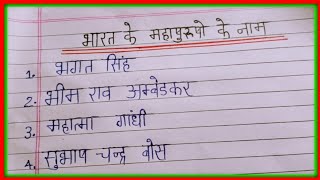 भारत के महापुरुषो के नाम
1. भगत सिंह
2. भीम राव अम्बेडकर
3. महात्मा गांधी
4. सुभाष चन्द्र बोस